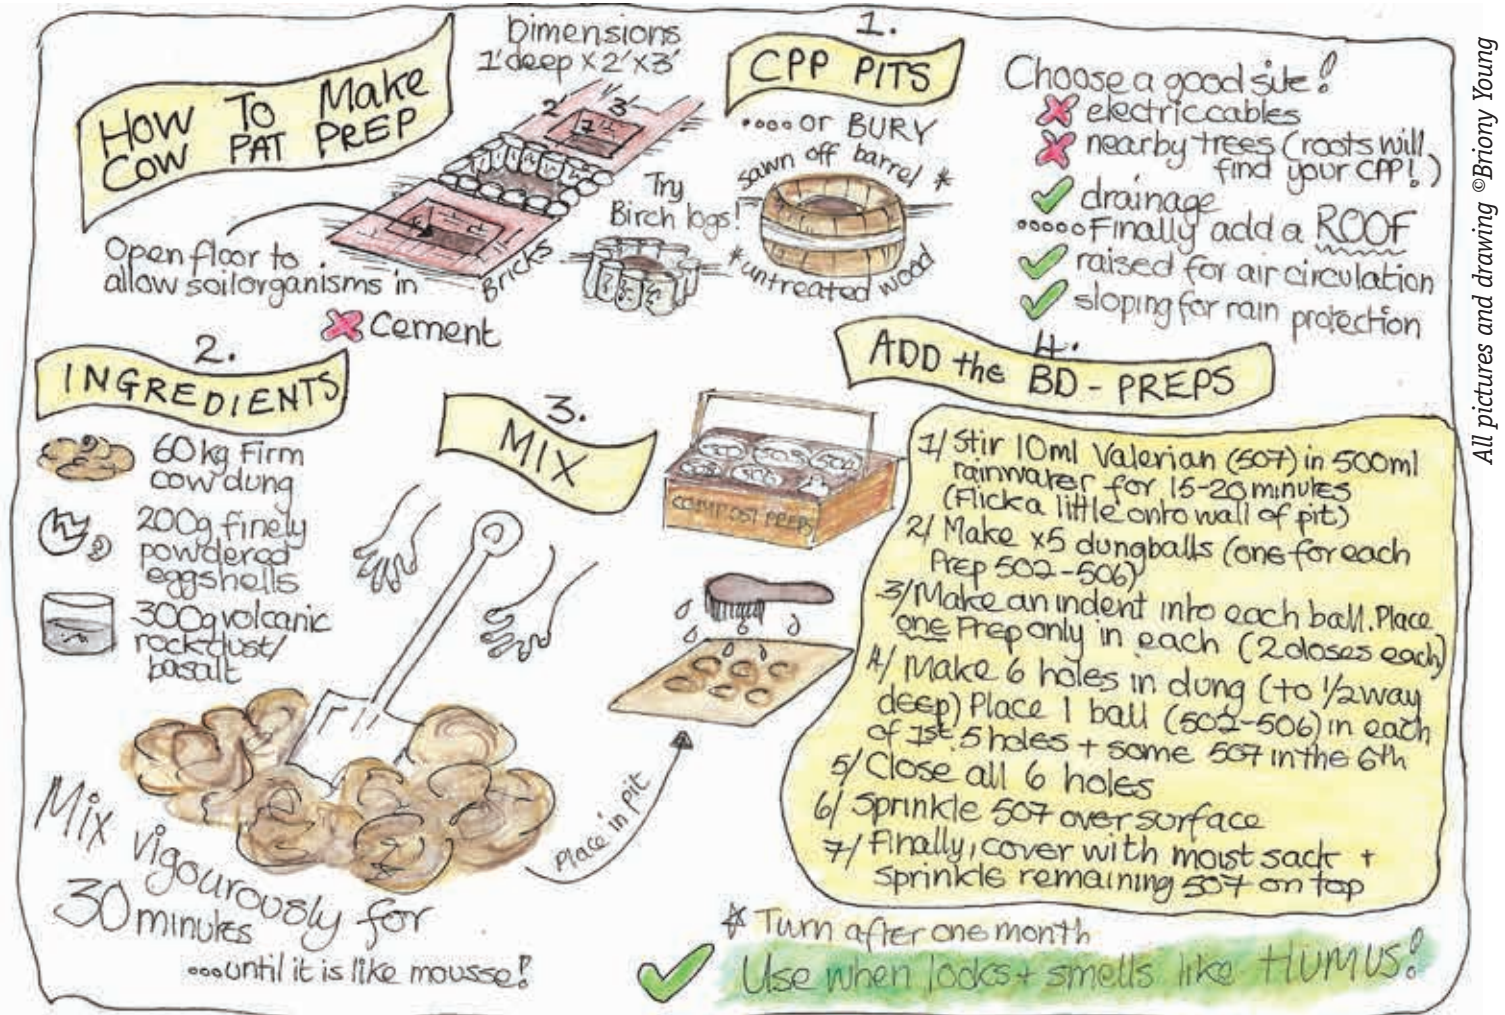 HOW TO Make
COW PAT PREP
Dimensions
1' deep x 2' x 3'
2' 3'
Open floor to
allow soil organisms in
Bricks
Try
Birch logs!
X Cement
1.
CPP PITS
.... or BURY
sawn off barrel *
* untreated wood
Choose a good site!
X electric cables
X nearby trees (roots will
find your CPP!)
✓ drainage
..... Finally add a ROOF
✓ raised for air circulation
✓ sloping for rain protection
2.
INGREDIENTS
60kg Firm
cow dung
200g finely
powdered
eggshells
300g volcanic
rockdust/
basalt
3.
MIX
Mix vigourously for
30 minutes
...until it is like mousse!
Place in pit
COMPOST PREPS
4.
ADD the BD-PREPS
1/ Stir 10ml Valerian (507) in 500ml
rainwater for 15-20 minutes
(Flick a little onto wall of pit)
2/ Make x5 dungballs (one for each
Prep 502-506)
3/ Make an indent into each ball. Place
one Prep only in each (2 doses each)
4/ Make 6 holes in dung (to 1/2 way
deep) Place 1 ball (502-506) in each
of 1st 5 holes + some 507 in the 6th
5/ Close all 6 holes
6/ Sprinkle 507 over surface
7/ Finally, cover with moist sack +
sprinkle remaining 507 on top
* Turn after one month
✓ Use when looks + smells like HUMUS!
All pictures and drawing ©Briony Young